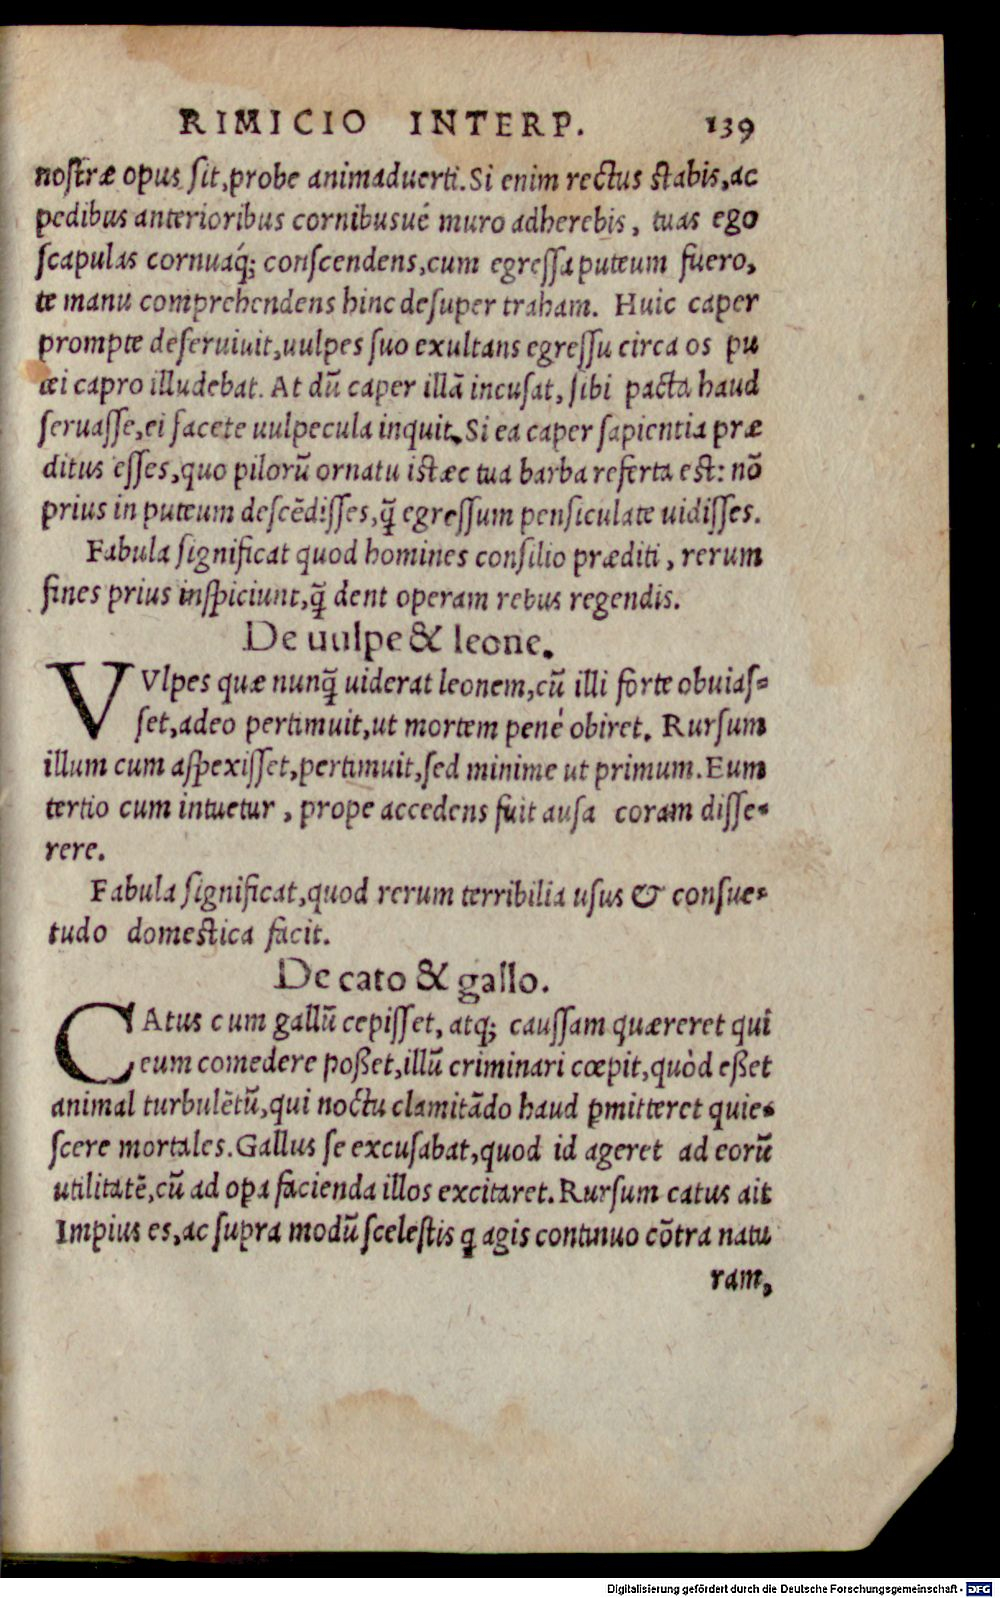 RIMICIO INTERP. 139
nostræ opus sit, probe animaduerti. Si enim rectus stabis, ac
pedibus anterioribus cornibusué muro adherebis, tuas ego
scapulas cornuaq́; conscendens, cum egressa puteum fuero,
te manu comprehendens hinc desuper traham. Huic caper
prompte deseruiuit, uulpes suo exultans egressu circa os pu
æi capro illudebat. At dū caper illā incusat, sibi pacta haud
seruasse, ei facete uulpecula inquit. Si ea caper sapientia præ
ditus esses, quo pilorū ornatu istæc tua barba referta est: nō
prius in puteum descēdisses, q̄ egressum pensiculate uidisses.
Fabula significat quod homines consilio præditi, rerum
fines prius inspiciunt, q̄ dent operam rebus regendis.
De uulpe & leone.
VVlpes quæ nunq̄ uiderat leonem, cū illi forte obuias-
set, adeo pertimuit, ut mortem pené obiret. Rursum
illum cum aspexisset, pertimuit, sed minime ut primum. Eum
tertio cum intuetur, prope accedens fuit ausa coram disse-
rere.
Fabula significat, quod rerum terribilia usus & consue-
tudo domestica facit.
De cato & gallo.
CAtus cum gallū cepisset, atq; caussam quæreret qui
eum comedere poßet, illū criminari cœpit, quòd eßet
animal turbulētū, qui noctu clamitādo haud ꝑmitteret quie-
scere mortales. Gallus se excusabat, quod id ageret ad eorū
utilitatē, cū ad oꝑa facienda illos excitaret. Rursum catus ait
Impius es, ac supra modū scelestis ꝗ agis continuo cōtra natu
ram,
Digitalisierung gefördert durch die Deutsche Forschungsgemeinschaft - DFG